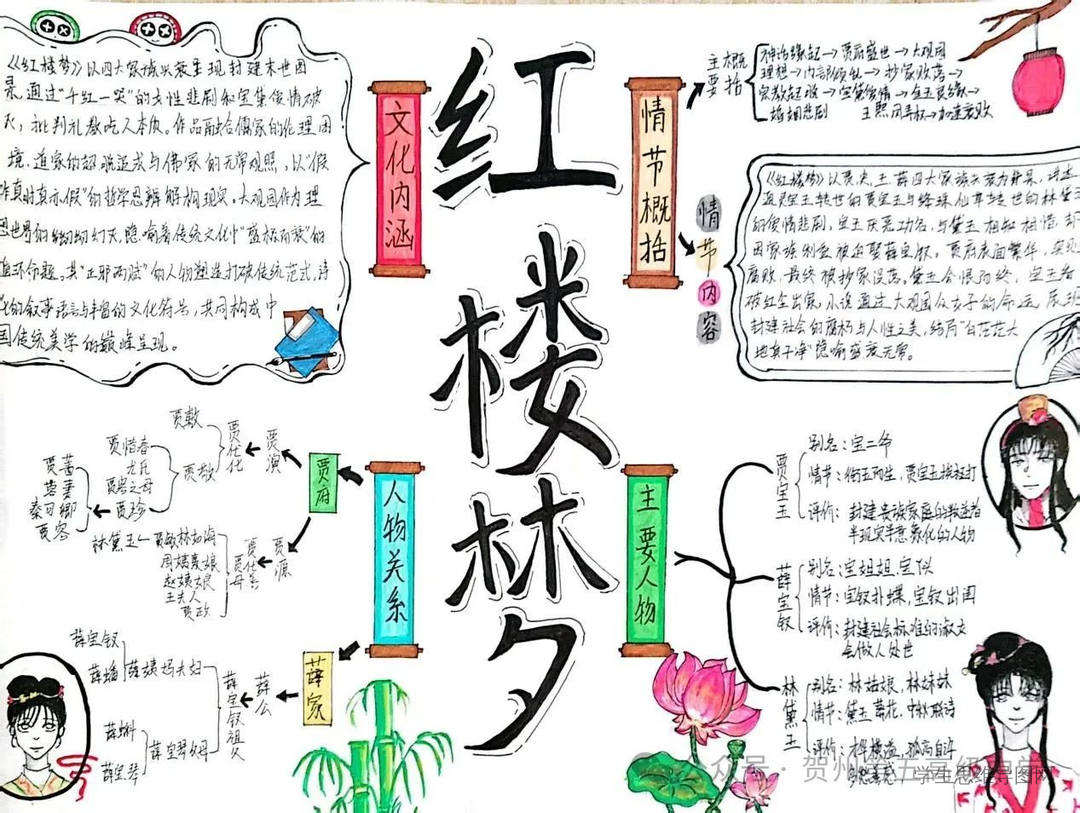 红楼梦
文化内涵
《红楼梦》以四大家族兴衰呈现封建末世图
景,通过"千红一哭"的女性悲剧和宝黛爱情破
灭,批判礼教吃人本质。作品融合儒家的伦理困
境、道家的超脱追求与佛家的无常观照,以"假
作真时真亦假"的哲学思辨解构现实。大观园作为理
想世界的幻灭,隐喻着传统文化中"盛极而衰"的
循环命题。其"正邪两赋"的人物塑造打破传统范式,诗
化的叙事语言与丰富的文化符号,共同构成中
国传统美学的巅峰呈现。
情节概括
主要
概括
神话缘起→贾府盛世→大观园
理想→内部倾轧→抄家败落→
宗教超脱→宝黛爱情→金玉良缘→
婚姻悲剧
情节内容
《红楼梦》以贾、史、王、薛四大家族兴衰为背景,讲述
的爱情悲剧。宝玉厌恶功名,与黛玉相知相惜,却
因家族利益被迫娶薛宝钗。贾府表面繁华,实则
腐败,最终被抄家没落。黛玉含恨而终,宝玉看
破红尘出家。小说通过大观园众女子的命运,展现
封建社会的腐朽与人性之美,结局"白茫茫大
地真干净"隐喻盛衰无常。
人物关系
贾府
贾演
贾代化
贾敷
贾敬
贾惜春
尤氏
贾珍
贾蔷
秦可卿
贾蓉
贾源
贾代善
贾母
贾敏林如海
林黛玉
周姨娘
赵姨娘
王夫人
贾政
薛家
薛公
薛宝钗祖父
薛姨妈夫妇
薛宝钗
薛蟠
薛宝琴父母
薛蝌
薛宝琴
主要人物
贾宝玉
别名:宝二爷
情节:衔玉而生,贾宝玉挨打
评价:封建贵族家庭的叛逆者
薛宝钗
别名:宝姐姐,宝似
情节:宝钗扑蝶,宝钗出闺
评价:封建社会标准的淑女
会做人处世
林黛玉
别名:林姑娘,林妹妹
情节:黛玉葬花,中秋联诗
评价:才华横溢,孤高自许
多愁善感
公众号·贺州
学生思维导图网